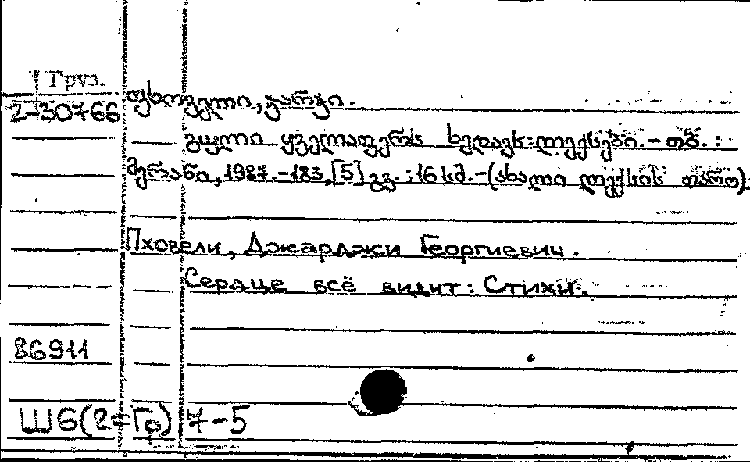 Груз.
2-30766 ფხოველი, ჯარჯი.
გული ყველაფერს ხედავს: ლექსები. - თბ. :
მერანი, 1987. - 183, [5] გვ. ; 16 სმ. - (ახალი ლექსის თარო).
Пховели, Джарджи Георгиевич.
Сердце всё видит: Стихи.
86911
Ш6(2=Гр)7-5